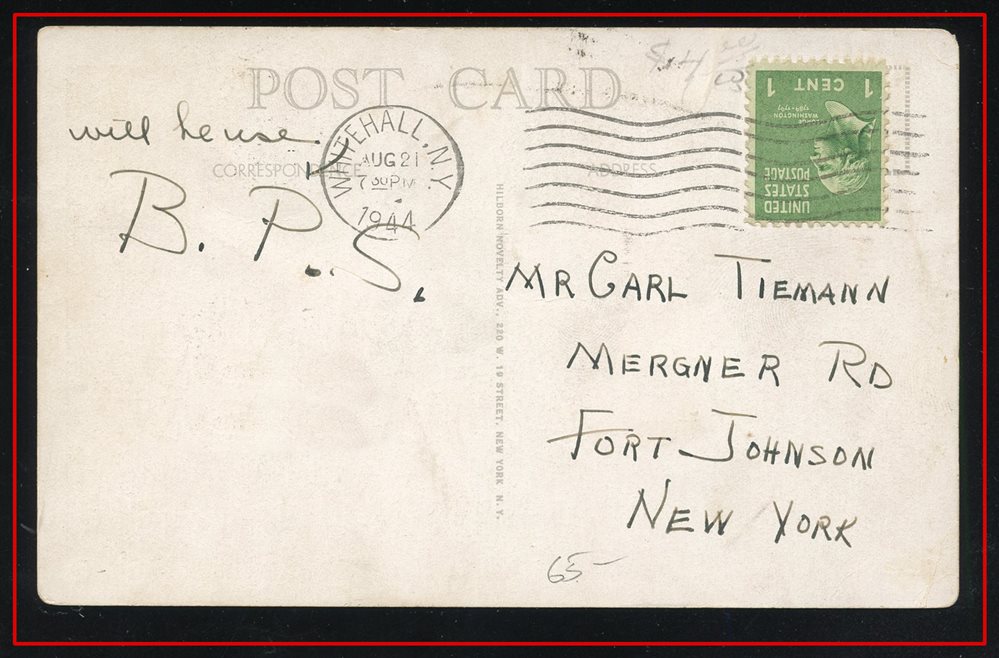 POST CARD
$14 00
will he use
CORRESPONDENCE
B. P. S.
WHITEHALL, N.Y.
AUG 21
7 30 PM
1944
ADDRESS
1 CENT 1
GEORGE WASHINGTON
1789-1797
UNITED
STATES
POSTAGE
HILBORN NOVELTY ADV., 220 W. 19 STREET, NEW YORK N.Y.
MR CARL TIEMANN
MERGNER RD
FORT JOHNSON
NEW YORK
65-